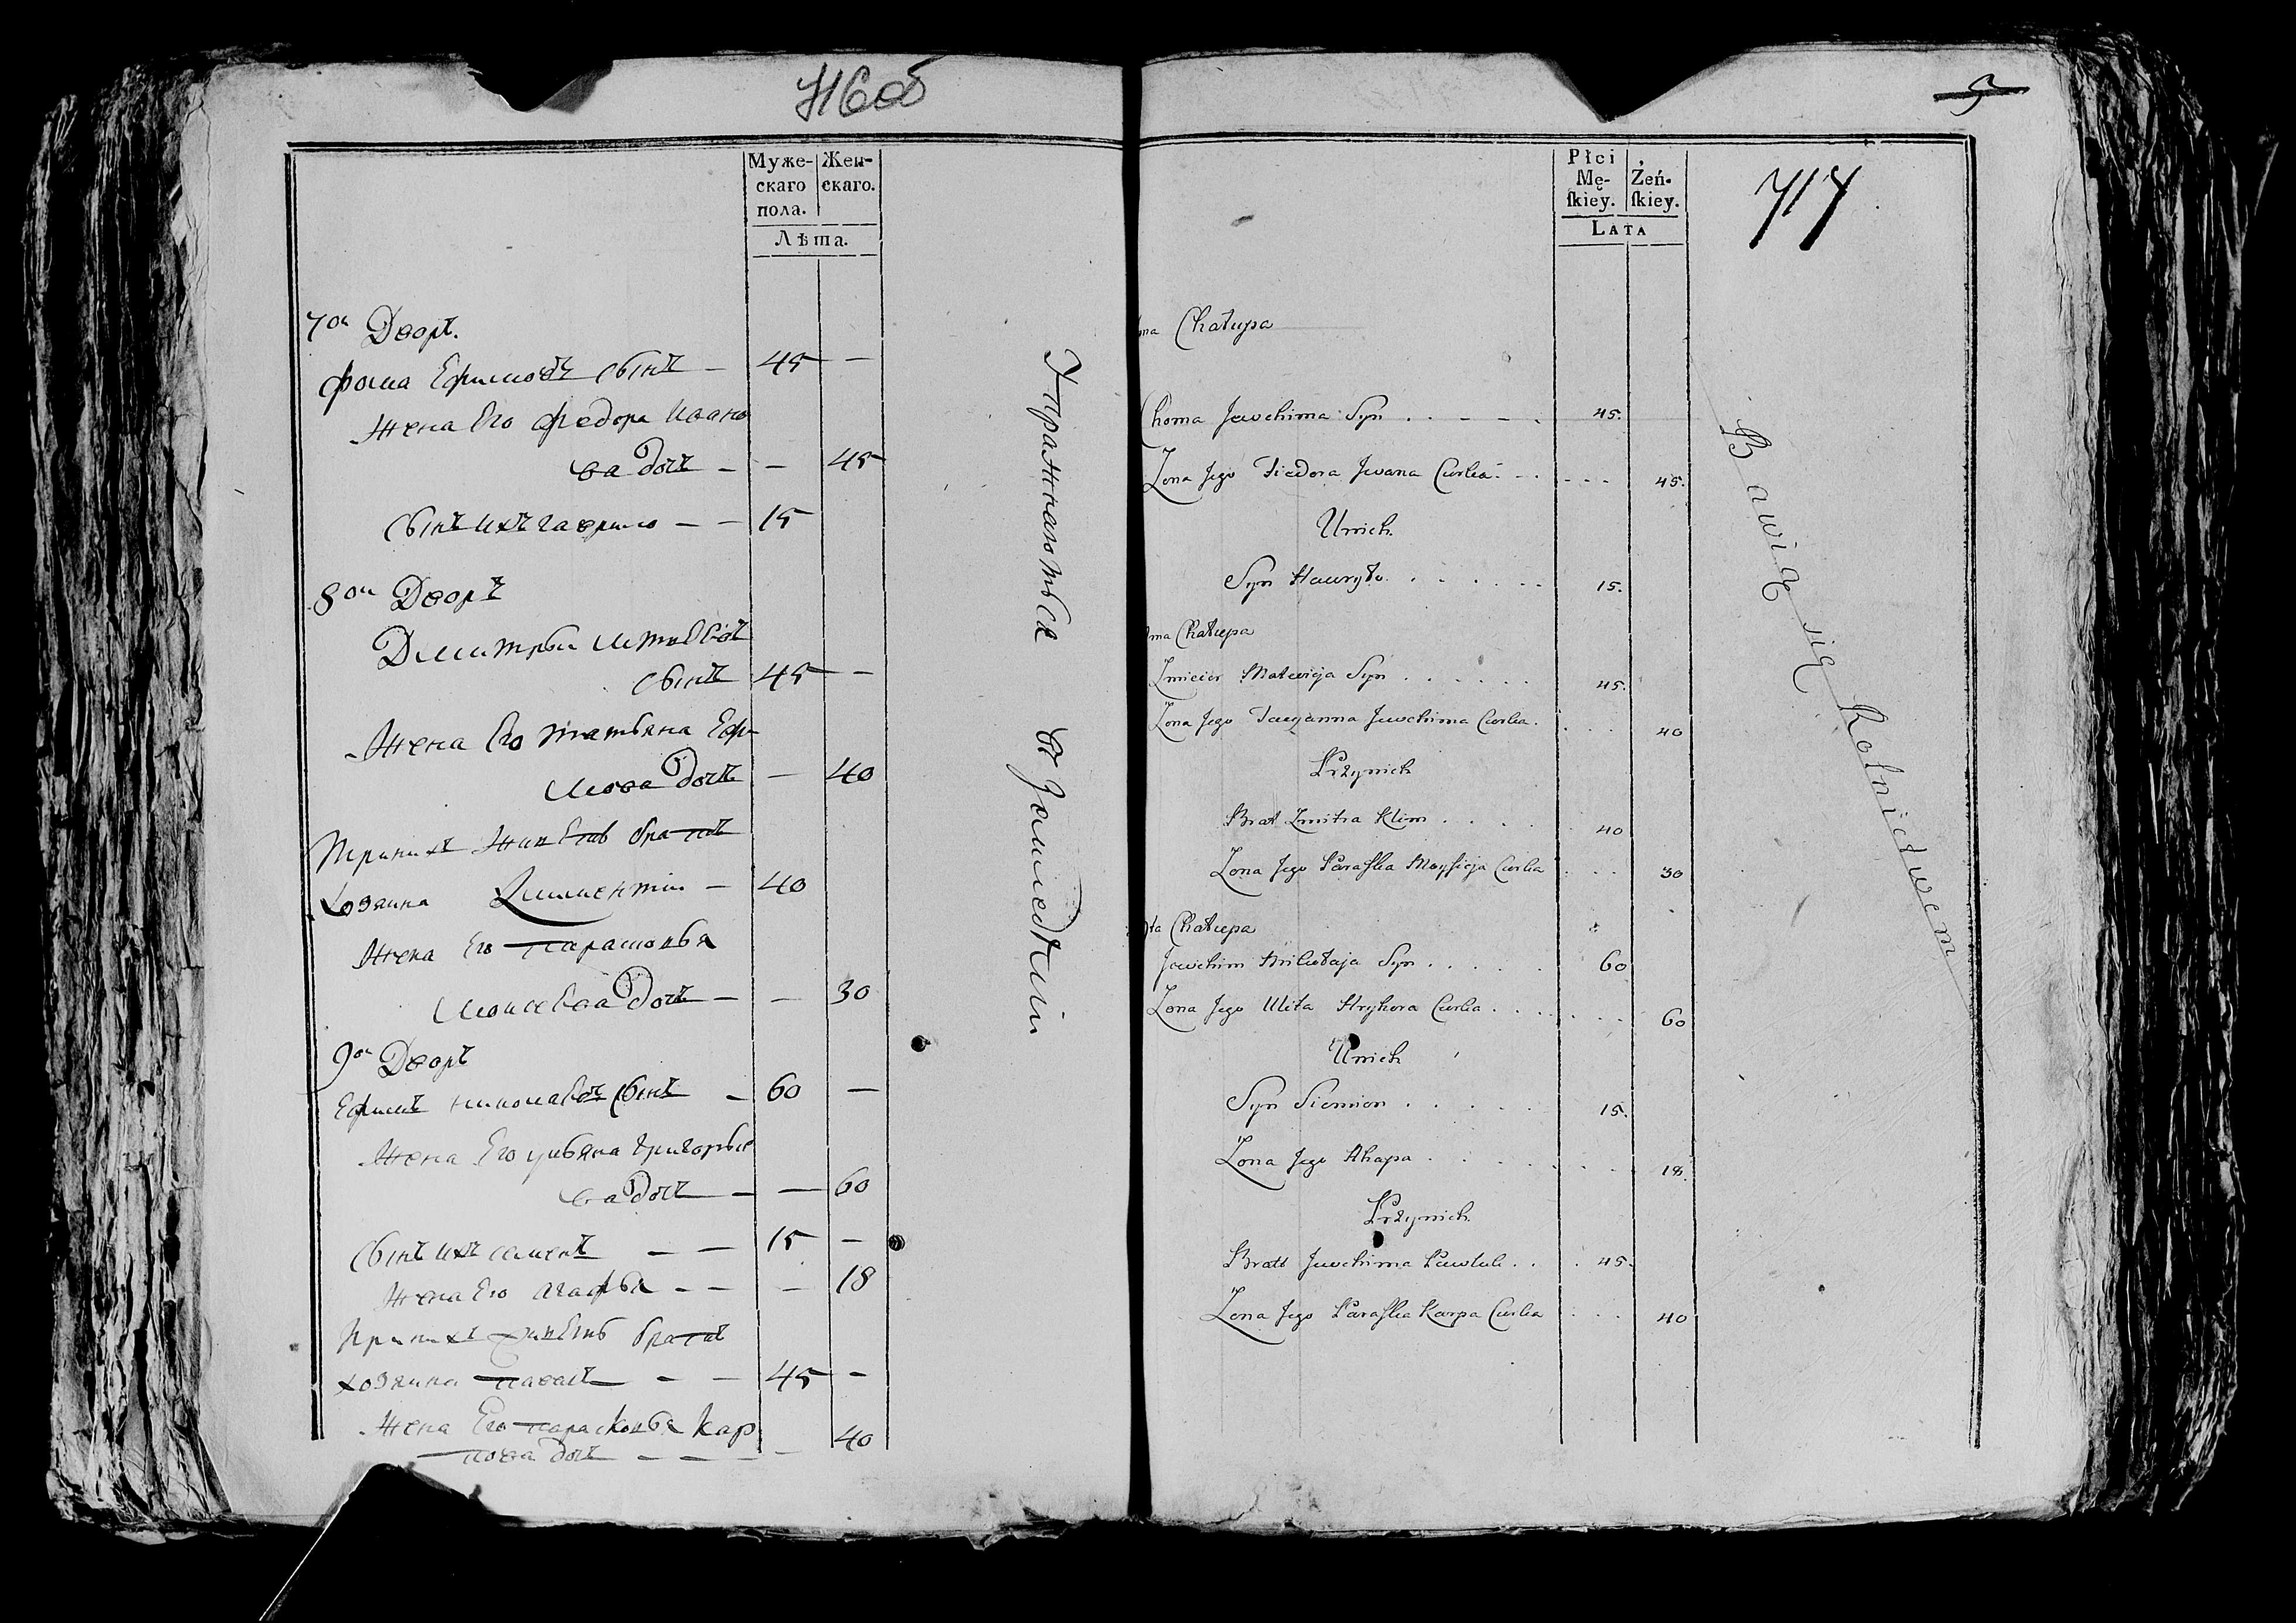 716об
Муже-
скаго
пола.
Жен-
скаго.
Лѣта.
7ой Дворъ.
Фома Ефимовъ сынъ — 45 —
Жена Его Федора Ивано
ва дочь — — 45
сынъ ихъ гаврило — — 15
8ой Дворъ
Дмитрей
сынъ 45 —
Жена Его татьяна Ефи-
мова дочь — 40
При нихъ живетъ братъ
хозяина Климентій — 40
Жена Его парасковья
Моисеева дочь — — 30
9ой Дворъ
Ефимъ николаевъ сынъ — 60 —
Жена Его ульяна григорье
ва дочь — — 60
сынъ ихъ семенъ — — 15 —
Жена Его агафья — — — 18
При нихъ живетъ братъ
хозяина павелъ — — 45 —
Жена Его парасковья Кар
пова дочь — — — — 40
Упражняются въ Земледѣліи
9
717
Płci
Mę-
ſkiey.
Żeń-
ſkiey.
LATA
ma Chałupa
Choma Jewchima Syn . . — — . 45.
Zona Jego Fiedora Jwana Curka . — . . . . 45.
U nich
Syn Hawryło . . . . . . 15.
ma Chałupa
Zmicier Matwieja Syn . . . . . . 45.
Zona Jego Tacyanna Jewchima Curka . . . . 40
Przy nich
Brat Zmitra Klim . . . . . 40
Zona Jego Paraſka Moyſieja Curka . . . 30
ta Chałupa
Jewchim Mikołaja Syn . . . . . 60
Zona Jego Ulita Hryhora Curka . . . . . . . 60
U nich
Syn Siemion . . . . . 15.
Zona Jego Ahapa . . . . . . . . 18.
Przy nich
Bratt Jewchima Pawluk . . . 45.
Zona Jego Paraſka Karpa Curka . . . 40
Bawią się Rolnictwem